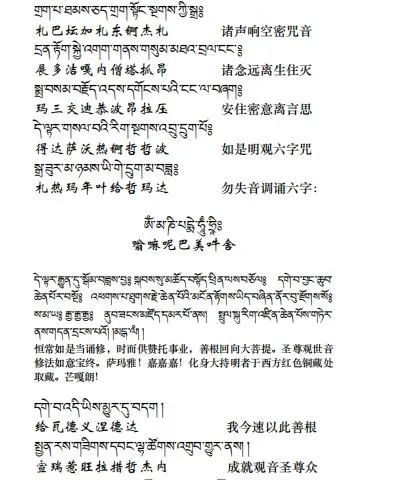 གྲག་པ་ཐམས་ཅད་གྲག་སྟོང་སྔགས་ཀྱི་སྒྲ༔
札巴坛加札东锕杰札 诸声响空密咒音
དྲན་རྟོག་སྐྱེ་འགག་གནས་གསུམ་མཐའ་བྲལ་ངང་༔
展多洁嘎内僧塔抓昂 诸念远离生住灭
སྨྲ་བསམ་བརྗོད་འདས་དགོངས་པའི་ངང་ལ་བཞག༔
玛三交迪恭波昂拉压 安住密意离言思
དེ་ལྟར་གསལ་བའི་རིག་སྔགས་འབྲུ་དྲུག་པོ༔
得达萨沃热锕哲哲波 如是明观六字咒
སྒྲ་ཟུར་མ་ཉམས་ཡི་གེ་དྲུག་མ་བཟླ༔
札热玛年叶给哲玛达 勿失音调诵六字：
ཨོཾ་མ་ཎི་པདྨེ་ཧཱུྃ་ཧྲཱིཿ
嗡嘛呢巴美吽舍
དེ་ལྟར་རྒྱུན་དུ་སྒོམ་བཟླས་བྱ༔ སྐབས་སུ་མཆོད་བསྟོད་ཕྲིན་ལས་བཅོལ༔ དགེ་བ་བྱང་ཆུབ་
ཆེན་པོར་བསྔོ༔ འཕགས་པ་ཐུགས་རྗེ་ཆེན་པོའི་མངོན་རྟོགས་ཡིད་བཞིན་ནོར་བུ་རྫོགས་སོ༔
ས་མ་ཡ༔ རྒྱ་རྒྱ་རྒྱ༔ ནུབ་ཟངས་མཛོད་དམར་པོ་ནས། སྤྲུལ་སྐུ་རིག་འཛིན་ཆེན་པོས་གཏེར་
ནས་གདན་དྲངས་པའོ། །མངྒ་ལཾ། །
恒常如是当诵修，时而供赞托事业，善根回向大菩提。圣尊观世音
修法如意宝终。萨玛雅！嘉嘉嘉！化身大持明者于西方红色铜藏处
取藏。芒嘎朗！
དགེ་བ་འདི་ཡིས་མྱུར་དུ་བདག །
给瓦德义涅德达 我今速以此善根
སྤྱན་རས་གཟིགས་དབང་ལྷ་ཚོགས་འགྲུབ་གྱུར་ནས། །
宣瑞惹旺拉措哲杰内 成就观音圣尊众